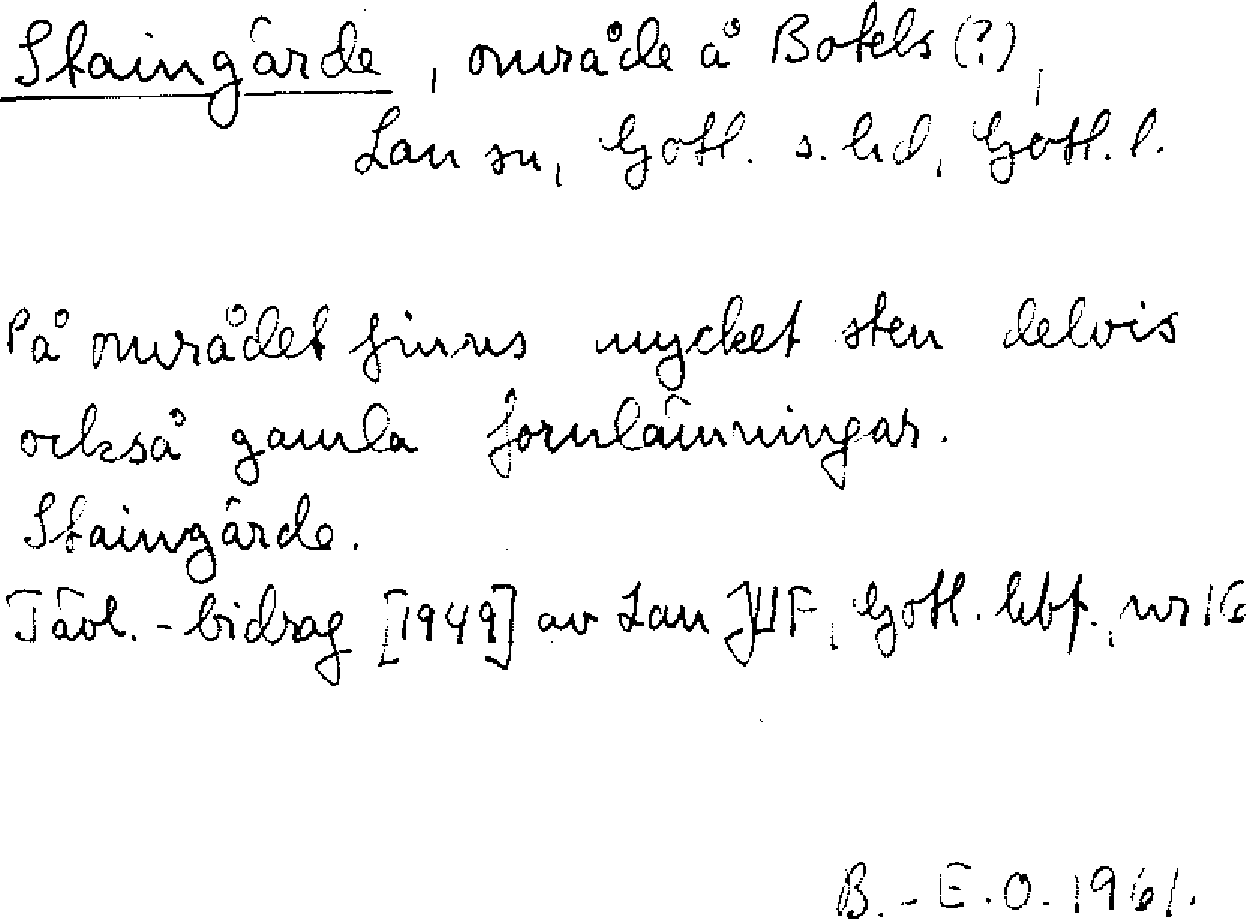 Staingärde, område å Botels (?),
Lau sn, Gotl. s. hd, Gotl. l.
På området finns mycket sten delvis
också gamla fornlämningar.
Staingärde.
Tävl.-bidrag [1949] av Lau JUF, Gotl. hbf., nr 16
B.-E.O. 1961.